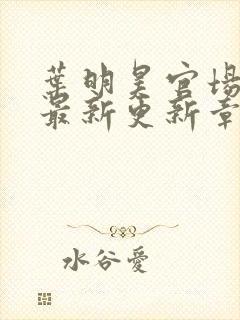 葉明昊官場
最新更新章
水谷愛